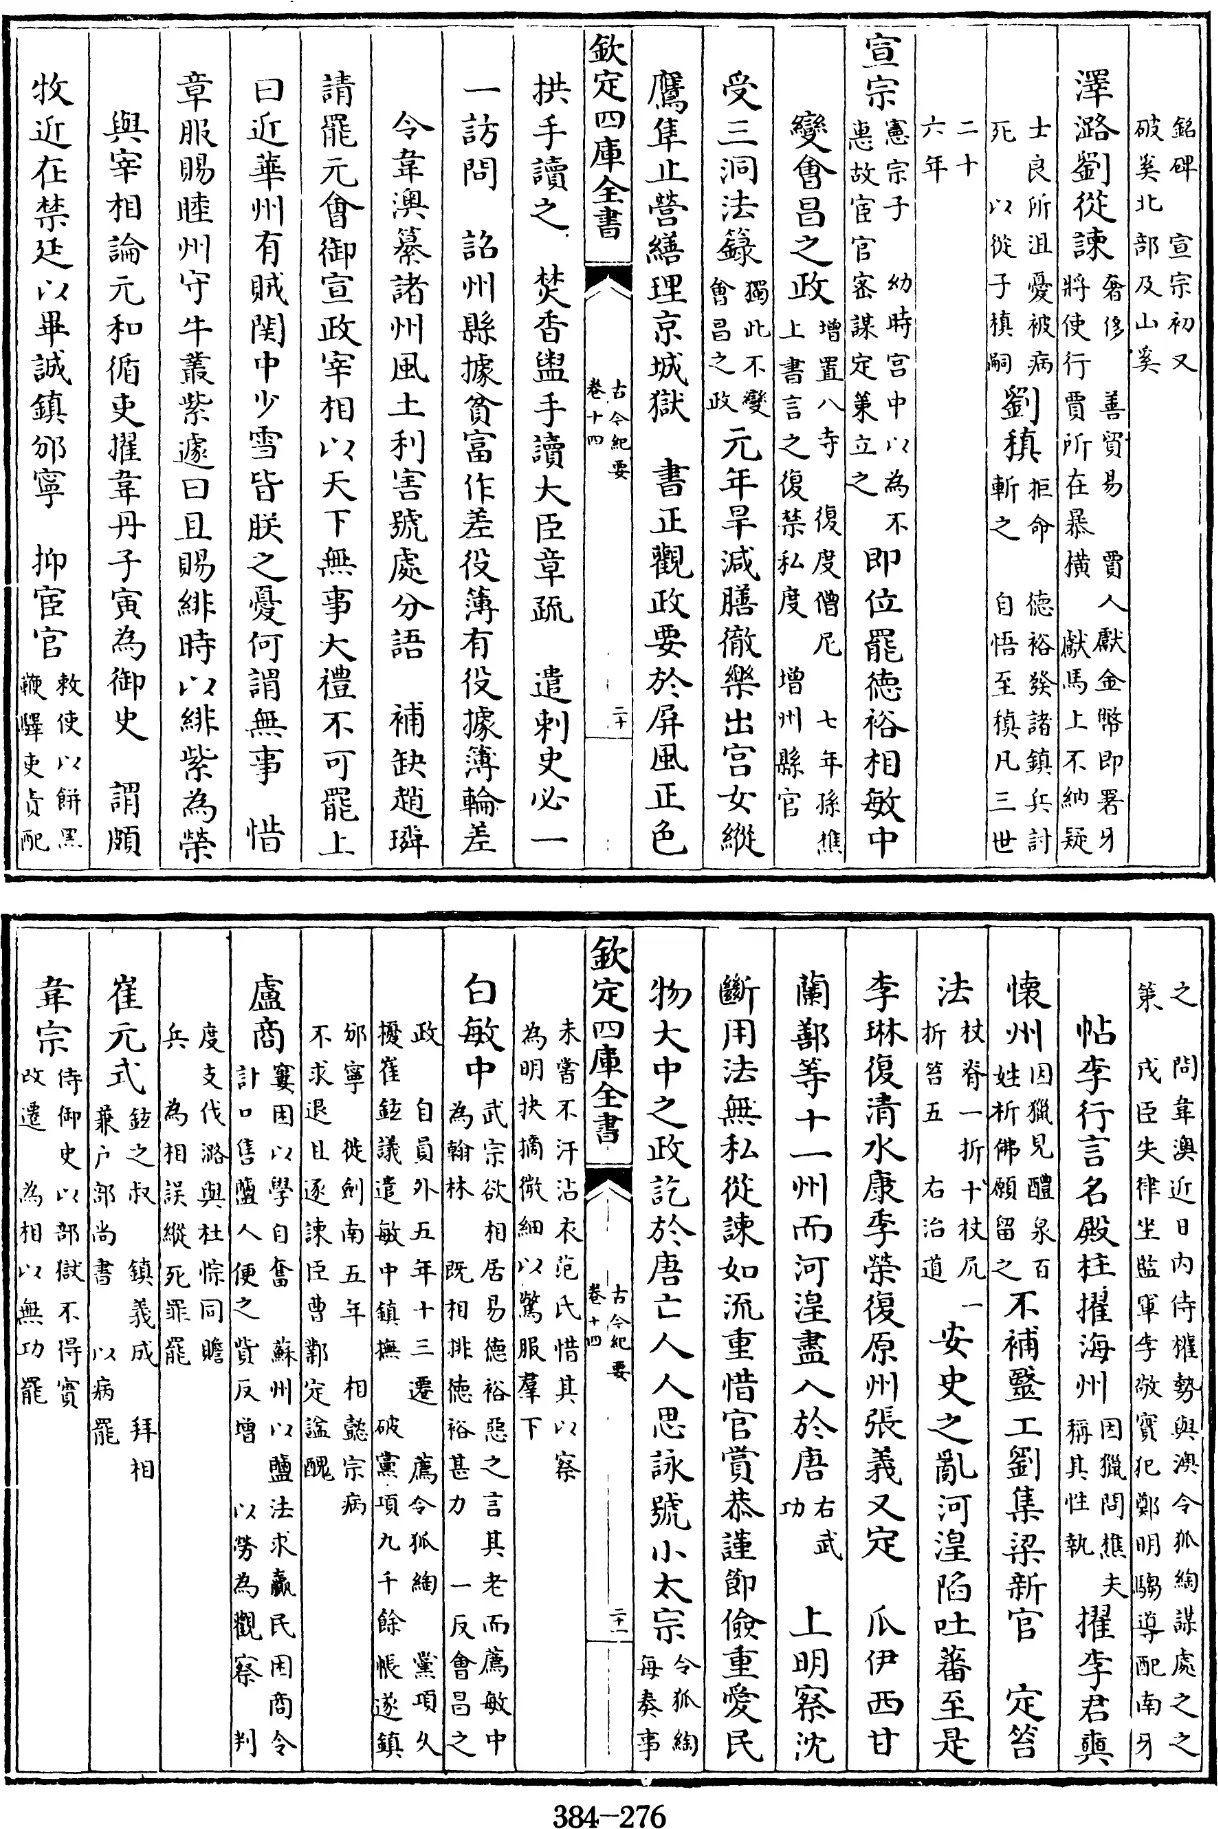 銘碑　宣宗初又
破奚北部及山奚
澤潞劉從諫
奢侈　善貿易　賈人獻金幣即署牙
將使行賈所在暴橫　獻馬上不納疑
士良所沮憂被病
死　以從子稹嗣
劉稹
拒命　德裕發諸鎮兵討
斬之　自悟至稹凡三世
二十
六年
宣宗
憲宗子　幼時宫中以為不
惠故宦官密謀定策立之
即位罷德裕相敏中
變會昌之政
增置八寺　復度僧尼　七年孫樵
上書言之復禁私度　增州縣官
受三洞法籙
獨此不變
會昌之政
元年旱減膳徹樂出宫女縱
鷹隼止營繕理京城獄　書正觀政要於屏風正色
欽定四庫全書
古今紀要
卷十四
二十
拱手讀之　焚香盥手讀大臣章疏　遣刺史必一
一訪問　詔州縣據貧富作差役簿有役據簿輪差
令韋澳纂諸州風土利害號處分語　補缺趙璘
請罷元會御宣政宰相以天下無事大禮不可罷上
曰近華州有賊関中少雪皆朕之憂何謂無事　惜
章服賜睦州守牛叢紫遽曰且賜緋時以緋紫為榮
與宰相論元和循吏擢韋丹子寅為御史　謂頗
牧近在禁廷以畢諴鎮邠寧　抑宦官
敕使以餅黒
鞭驛吏貞配
之　問韋澳近日内侍權勢與澳令狐綯謀處之之
第　戍臣失律坐監軍李敬實犯鄭明騶導配南牙
帖李行言名殿柱擢海州
因獵問樵夫
稱其性執
擢李君奭
懷州
因獵見醴泉百
姓祈佛願留之
不補毉工劉集梁新官　定笞
法
杖脊一折十杖凥一
折笞五　右治道
安史之亂河湟陷吐蕃至是
李琳復清水康季榮復原州張義又定　瓜伊西甘
蘭鄯等十一州而河湟盡入於唐
右武
功
上明察沈
斷用法無私從諫如流重惜官賞恭謹節儉重愛民
物大中之政訖於唐亡人人思詠號小太宗
令狐綯
每奏事
欽定四庫全書
古今紀要
卷十四
二十一
未嘗不汗沾衣范氏惜其以察
為明抉摘微細以驚服羣下
白敏中
武宗欲相居易德裕惡之言其老而薦敏中
為翰林　既相排德裕甚力　一反會昌之
政　自員外五年十三遷　薦令狐綯　黨項久
擾崔鉉議遣敏中鎮撫　破黨項九千餘帳遂鎮
邠寧　徙劍南五年　相懿宗病
不求退且逐諫臣曹鄴定謚醜
盧商
窶困以學自奮　蘇州以鹽法求贏民困商令
計口售鹽人便之貲反增　以勞為觀察　判
度支代潞與杜悰同瞻
兵　為相誤縱死罪罷
崔元式
鉉之叔　鎮義成　拜相
兼户部尚書　以病罷
韋宗
侍御史以部獄不得實
改遷　為相以無功罷
384-276